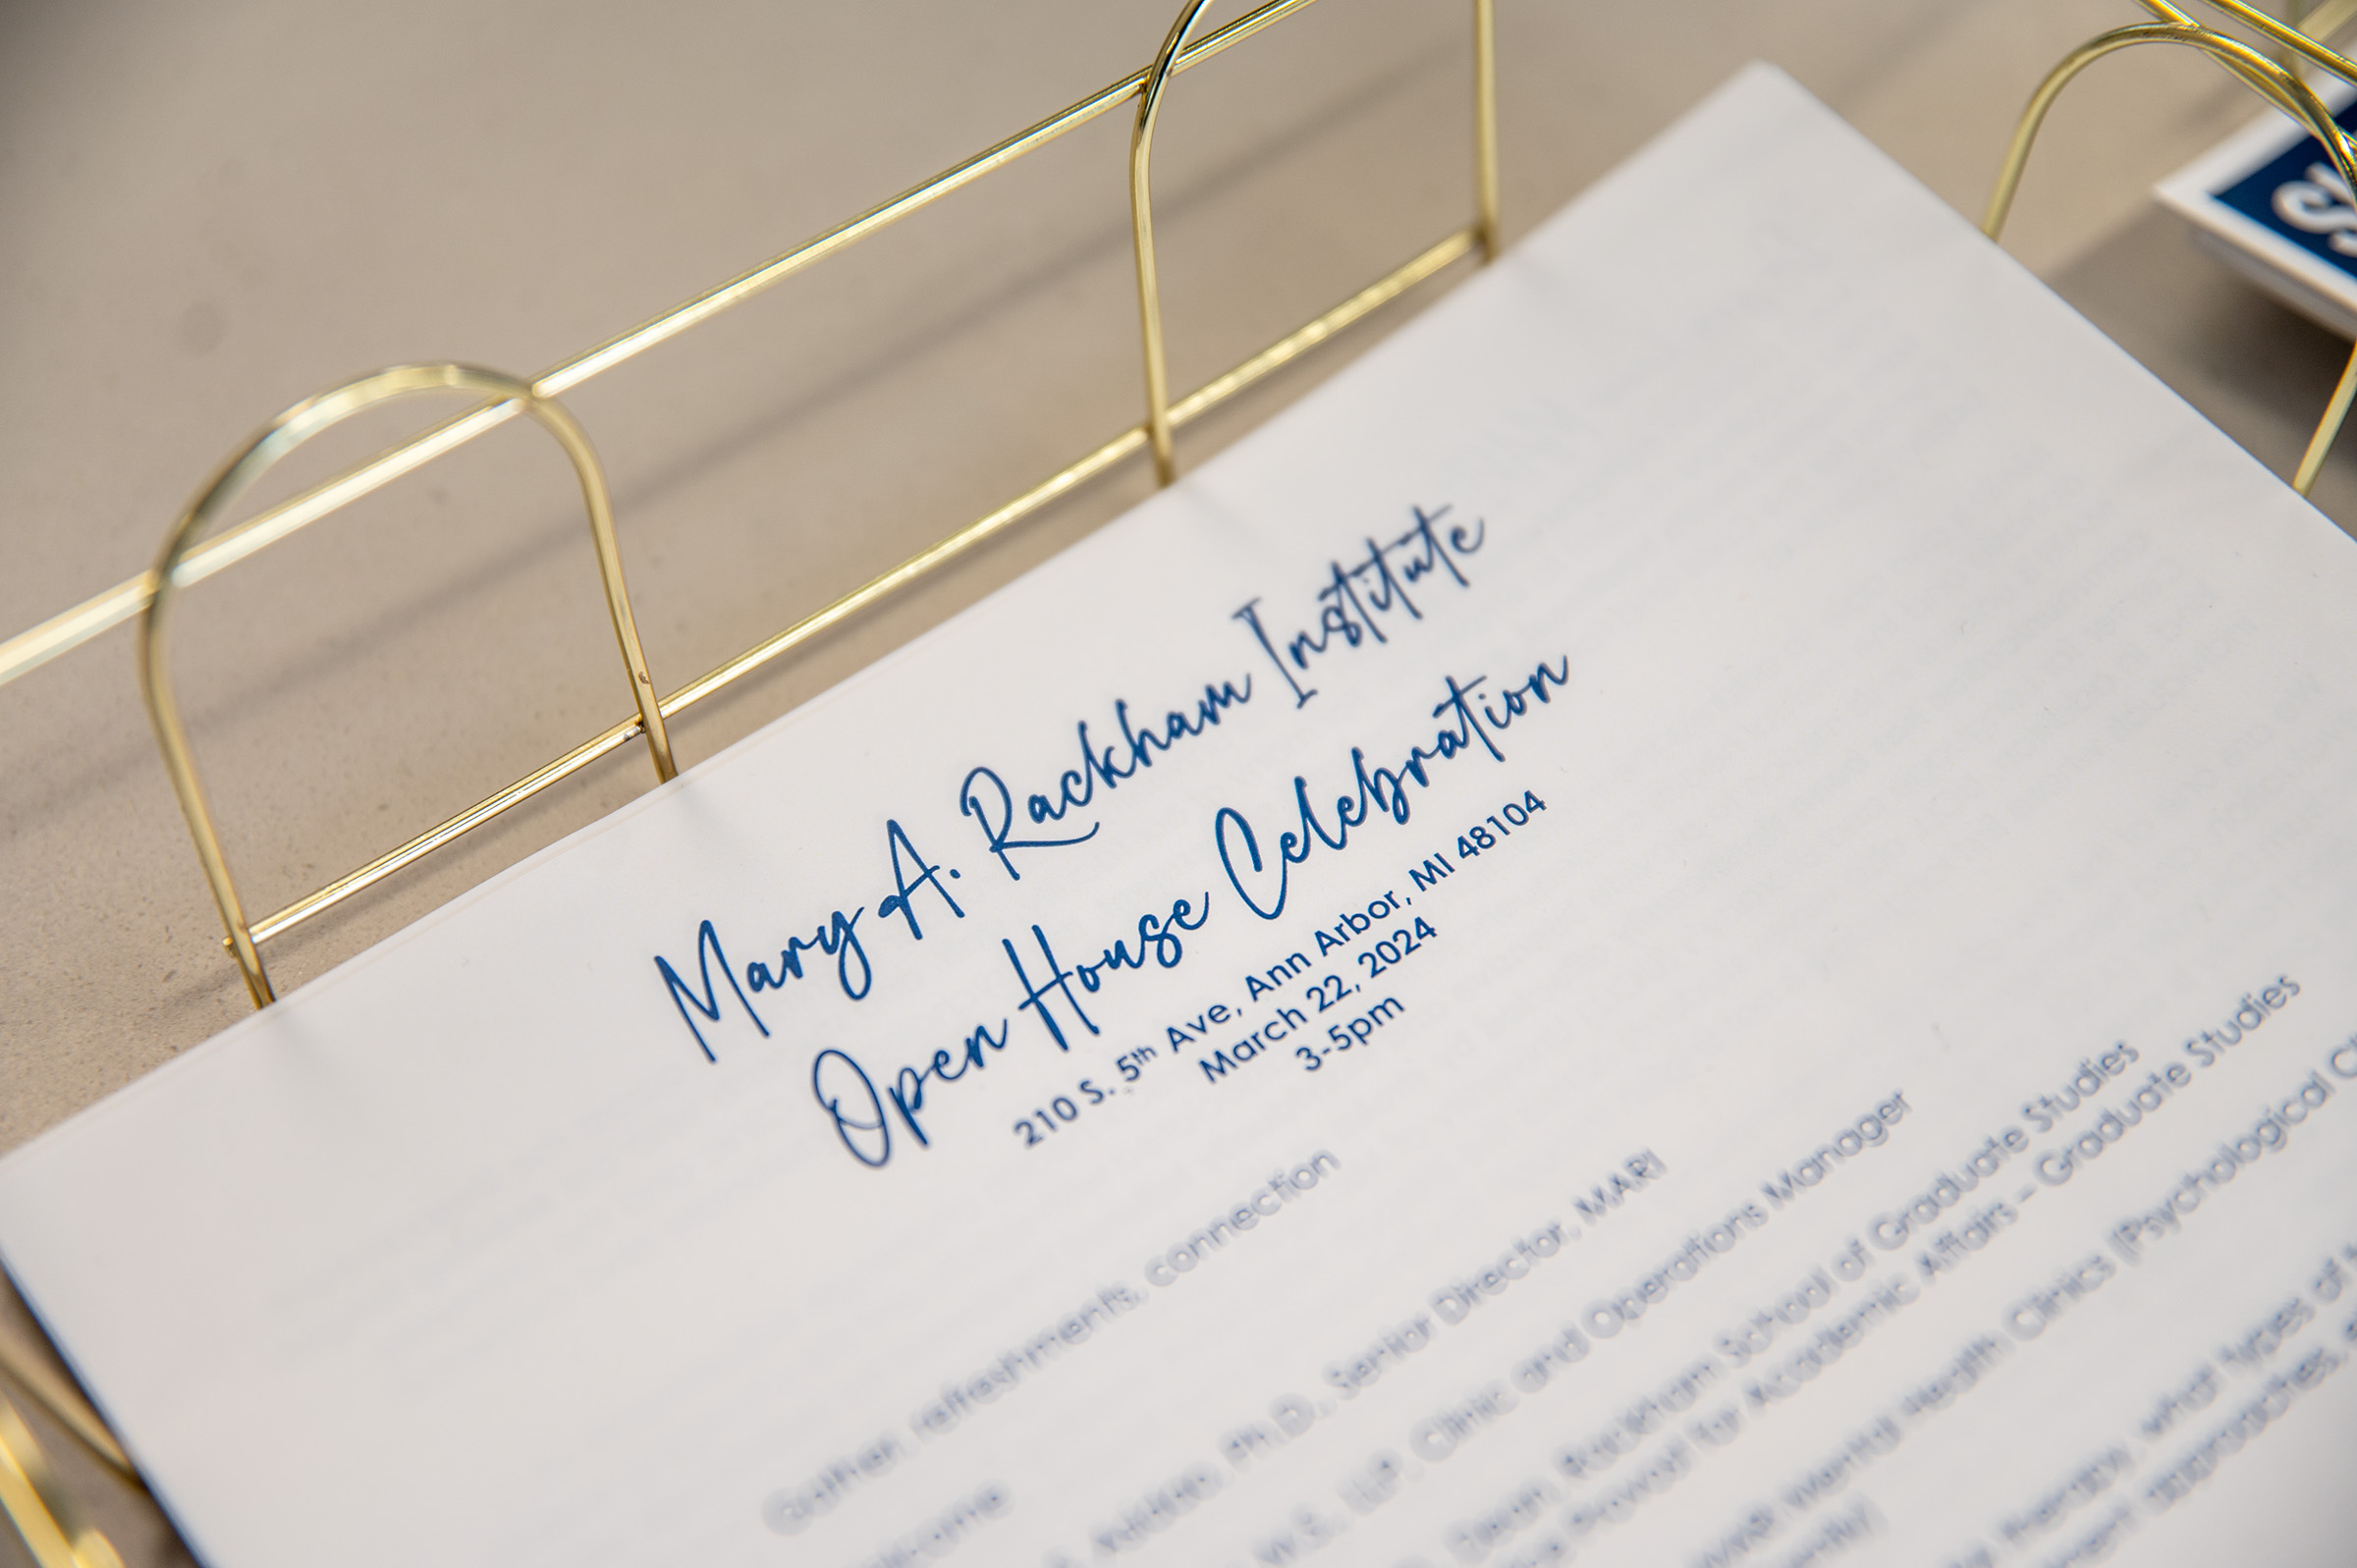 Mary A. Rackham Institute
Open House Celebration
210 S. 5th Ave, Ann Arbor, MI 48104
March 22, 2024
3-5pm
Gather, refreshments, connection
Ph.D., Senior Director, MARI
Clinic and Operations Manager
Rackham School of Graduate Studies
for Academic Affairs – Graduate Studies
Mental Health Clinics (Psychological
therapy, what types of
approaches,